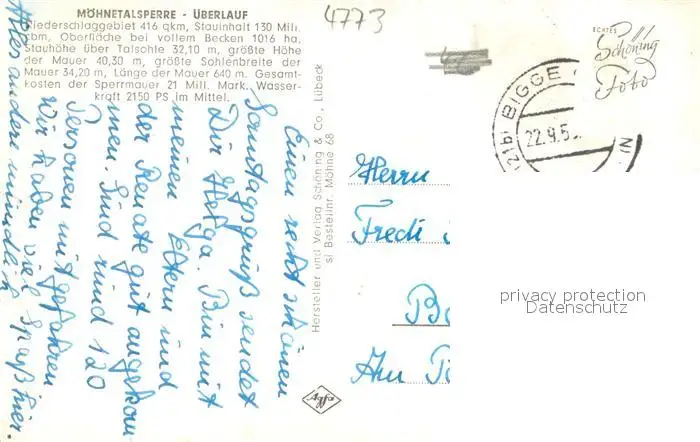 MÖHNETALSPERRE - ÜBERLAUF
Niederschlaggebiet 416 qkm, Stauinhalt 130 Mill.
cbm, Oberfläche bei vollem Becken 1016 ha,
Stauhöhe über Talsohle 32,10 m, größte Höhe
der Mauer 40,30 m, größte Sohlenbreite der
Mauer 34,20 m, Länge der Mauer 640 m. Gesamt-
kosten der Sperrmauer 21 Mill. Mark. Wasser-
kraft 2150 PS im Mittel.
4773
ECHTES
Schöning
Foto
(21b) BIGGE
22.9.5
Einen recht schönen
Sonntagsgruß sendet
Dir Helga. Bin mit
meinen Eltern und
der Renate gut angekom
men. Sind rund 120
Personen mitgefahren
Wir haben viel Spaß hier.
Alles andere mündlich
Hersteller und Verlag Schöning & Co., Lübeck
s/ Bestellnr. Möhne 68
Agfa
Herrn
Fredi
Bo
An
privacy protection
Datenschutz